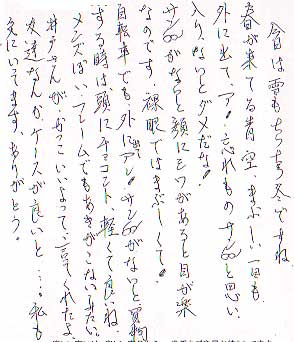 今は雪もちらちら冬ですね
春が来てる青空、まぶしい一日も
外に出て、ア!忘れものサングラスと思い
入り、ないとダメだな!
サングラスがないと顔にシワがあると目が楽
なのです。裸眼ではまぶしくて!
自転車でも、外に出てアレ!サングラスがないと買物
する時は頭にチョコント 軽くて良いね。
メンズぽいフレームでもあきがこないみたい
サンがかっこいいよって、言ってくれたよ
友達なんか、ケースが良いと……私も
気にいてます、ありがとう。